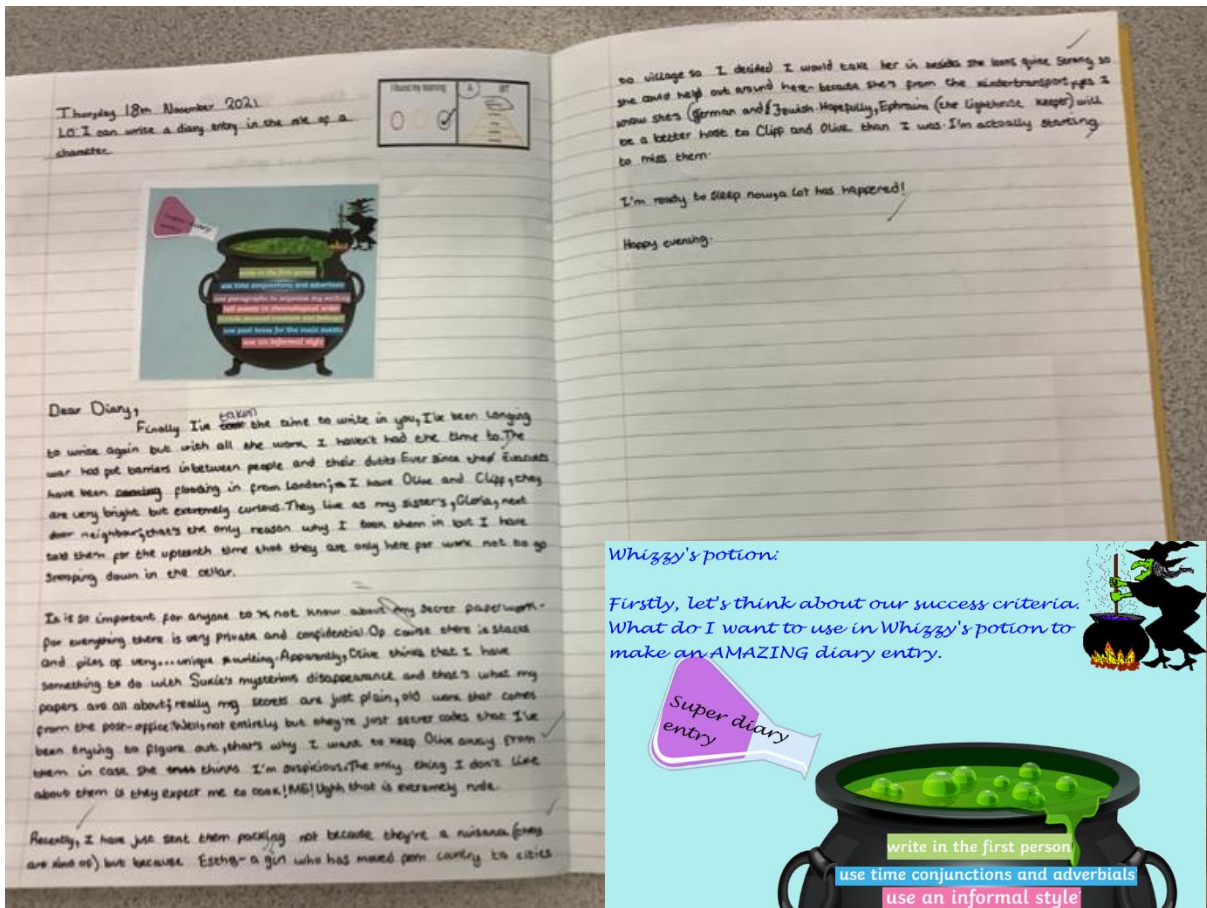 Thursday 18th November 2021
LO: I can write a diary entry in the role of a
character.
I found my learning
A
Super diary
entry
write in the first person
use time conjunctions and adverbials
use paragraphs to organise my writing
tell events in chronological order
include personal emotions and feelings
use past tense for the main events
use an informal style
Dear Diary,
taken
Finally I've the time to write in you, I've been longing
to write again but with all the work, I haven't had the time to. The
war had put barriers inbetween people and their duties. Ever since the Evacuees
have been flooding in from London; I have Olive and Cliff, they
are very bright but extremely curious. They live as my sister's, Gloria, next
door neighbour; that's the only reason why I took them in but I have
told them for the upteenth time that they are only here for work not to go
snooping down in the cellar.
Is is so important for anyone to not know about my secret paperwork-
for everything there is very private and confidential. Of course there is stacks
and piles of very... unique writing. Apparently, Olive thinks that I have
something to do with Sukie's mysterious disappearance and that's what my
papers are all about; really my secrets are just plain, old work that comes
from the post-office. Well, not entirely but they're just secret codes that I've
been trying to figure out, that's why I want to keep Olive away from
them in case she thinks I'm suspicious. The only thing I don't like
about them is they expect me to cook! ME! Ughh that is extremely rude.
Recently, I have just sent them packing not because they're a nuisance (they
are kind of) but because Esther- a girl who has moved from country to cities
to village so I decided I would take her in besides she looks quite strong so
she could help out around here- because she's from the kindertransport, yes I
know she's (German and Jewish. Hopefully, Ephraim (the lighthouse keeper) will
be a better host to Cliff and Olive than I was. I'm actually starting
to miss them.
I'm ready to sleep now, a lot has happened!
Happy evening.
Whizzy's potion:
Firstly, let's think about our success criteria.
What do I want to use in Whizzy's potion to
make an AMAZING diary entry.
Super diary
entry
write in the first person
use time conjunctions and adverbials
use an informal style